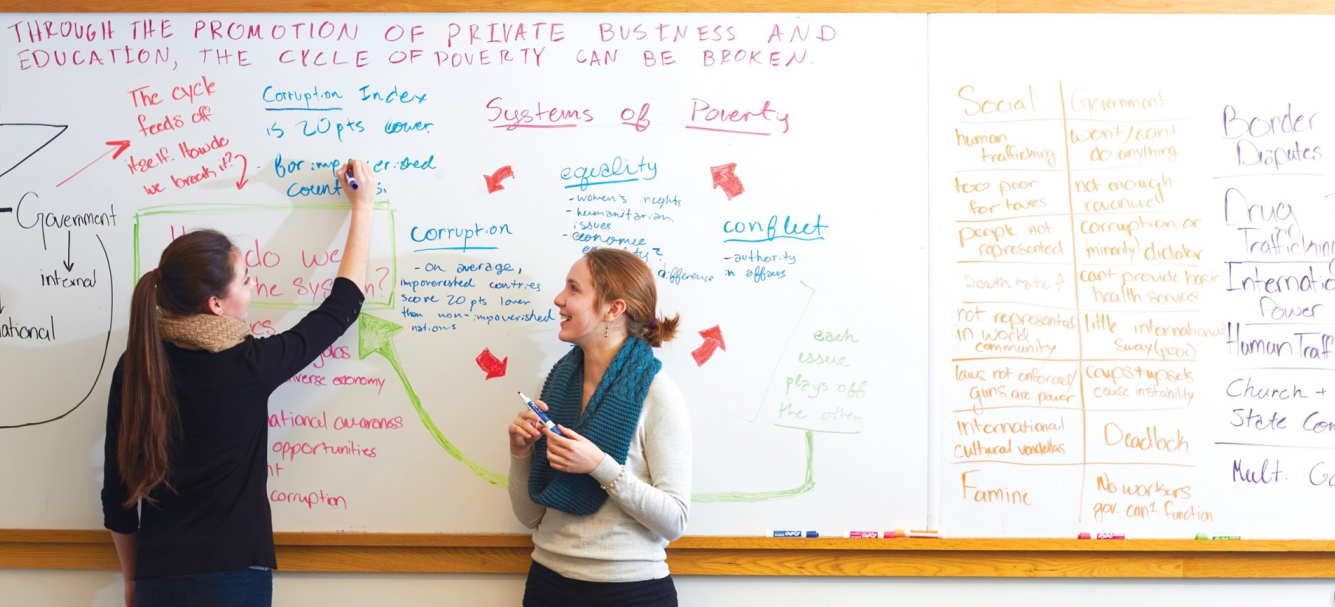 THROUGH THE PROMOTION OF PRIVATE BUSINESS AND
EDUCATION, THE CYCLE OF POVERTY CAN BE BROKEN.
The cycle
feeds off
itself. How do
we break it?
Corruption Index
is 20 pts lower
Government
internal
do we
Systems of Poverty
equality
- women's rights
- humanitarian
issues
- economic
difference
corruption
- on average,
impoverished contries
score 20 pts lower
than non-impoverished
nations
conflict
- authority
in affairs
each
issue
plays off
the other
economy
awareness
opportunities
corruption
Social
Government
human
trafficking
wont/cant
do anything
too poor
for taxes
not enough
revenue
people not
represented
corruption or
(minority) dictator
Death rate
cant provide basic
health services
not represented
in world
community
little international
sway (poor)
laws not enforced/
guns are power
coups + upsets
cause instability
International
cultural
Deadlock
Famine
No workers
gov. can't function
Border
Disputes
Drug
Trafficking
Power
Human
Church +
State
Mult.